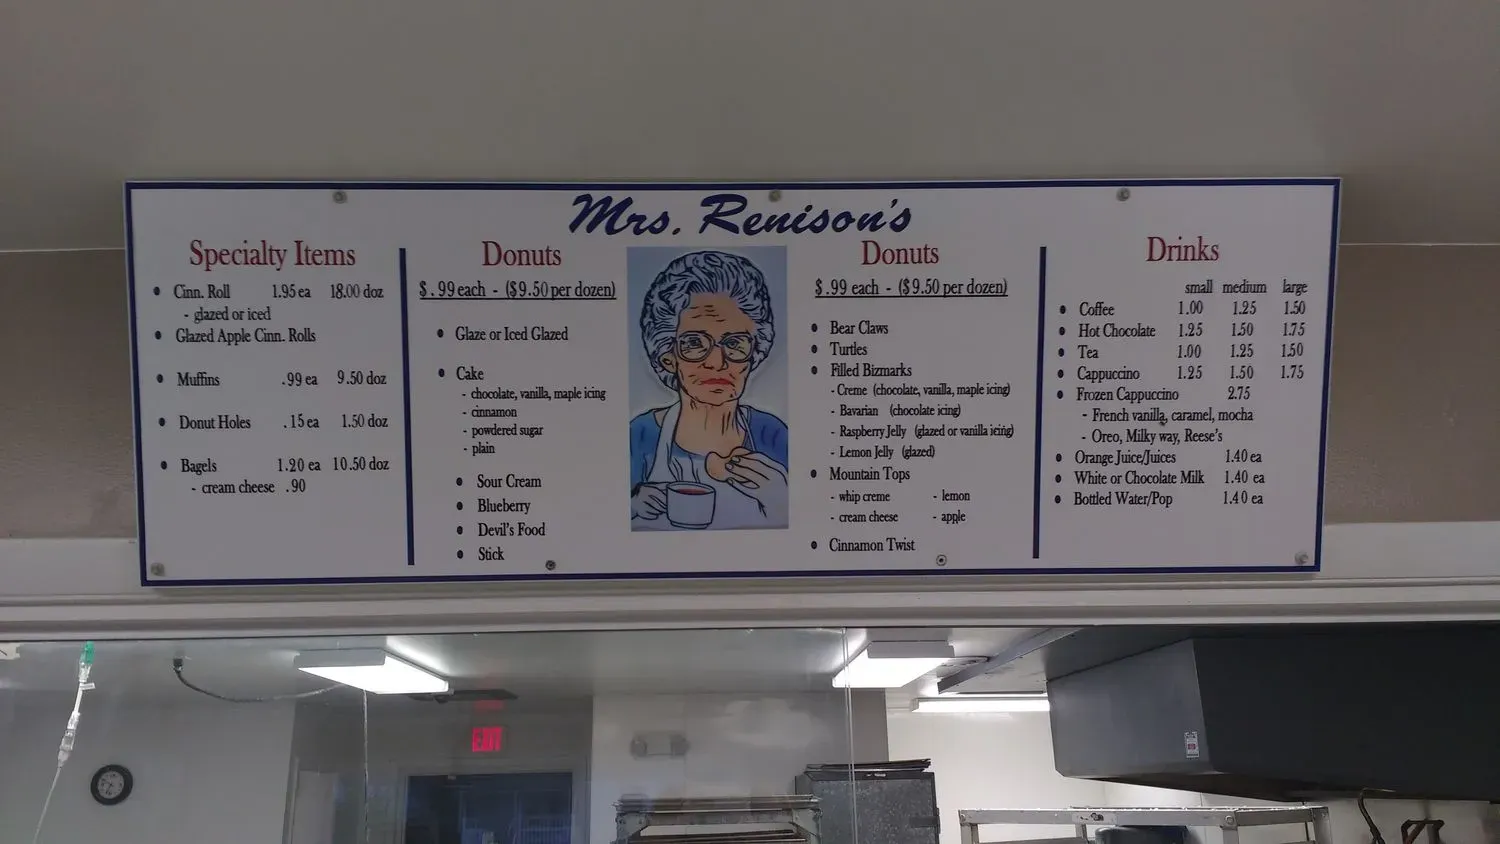 Mrs. Renison's
Specialty Items
• Cinn. Roll 1.95 ea 18.00 doz
- glazed or iced
• Glazed Apple Cinn. Rolls
• Muffins .99 ea 9.50 doz
• Donut Holes .15 ea 1.50 doz
• Bagels 1.20 ea 10.50 doz
- cream cheese .90
Donuts
$.99 each - ($9.50 per dozen)
• Glaze or Iced Glazed
• Cake
- chocolate, vanilla, maple icing
- cinnamon
- powdered sugar
- plain
• Sour Cream
• Blueberry
• Devil's Food
• Stick
Donuts
$.99 each - ($9.50 per dozen)
• Bear Claws
• Turtles
• Filled Bizmarks
- Creme (chocolate, vanilla, maple icing)
- Bavarian (chocolate icing)
- Raspberry Jelly (glazed or vanilla icing)
- Lemon Jelly (glazed)
• Mountain Tops
- whip creme - lemon
- cream cheese - apple
• Cinnamon Twist
Drinks
small medium large
• Coffee 1.00 1.25 1.50
• Hot Chocolate 1.25 1.50 1.75
• Tea 1.00 1.25 1.50
• Cappuccino 1.25 1.50 1.75
• Frozen Cappuccino 2.75
- French vanilla, caramel, mocha
- Oreo, Milky way, Reese's
• Orange Juice/Juices 1.40 ea
• White or Chocolate Milk 1.40 ea
• Bottled Water/Pop 1.40 ea
EXIT